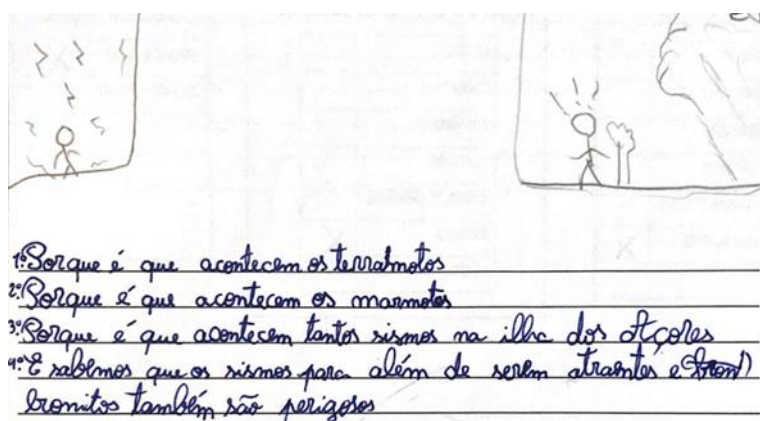 1º Porque é que acontecem os terratmotos
2º Porque é que acontecem os marmotos
3º Porque é que acontecem tantos sismos na ilha dos Açores
4º E sabemos que os sismos para além de serem atraentes e (bron)
bronitos também são perigosos